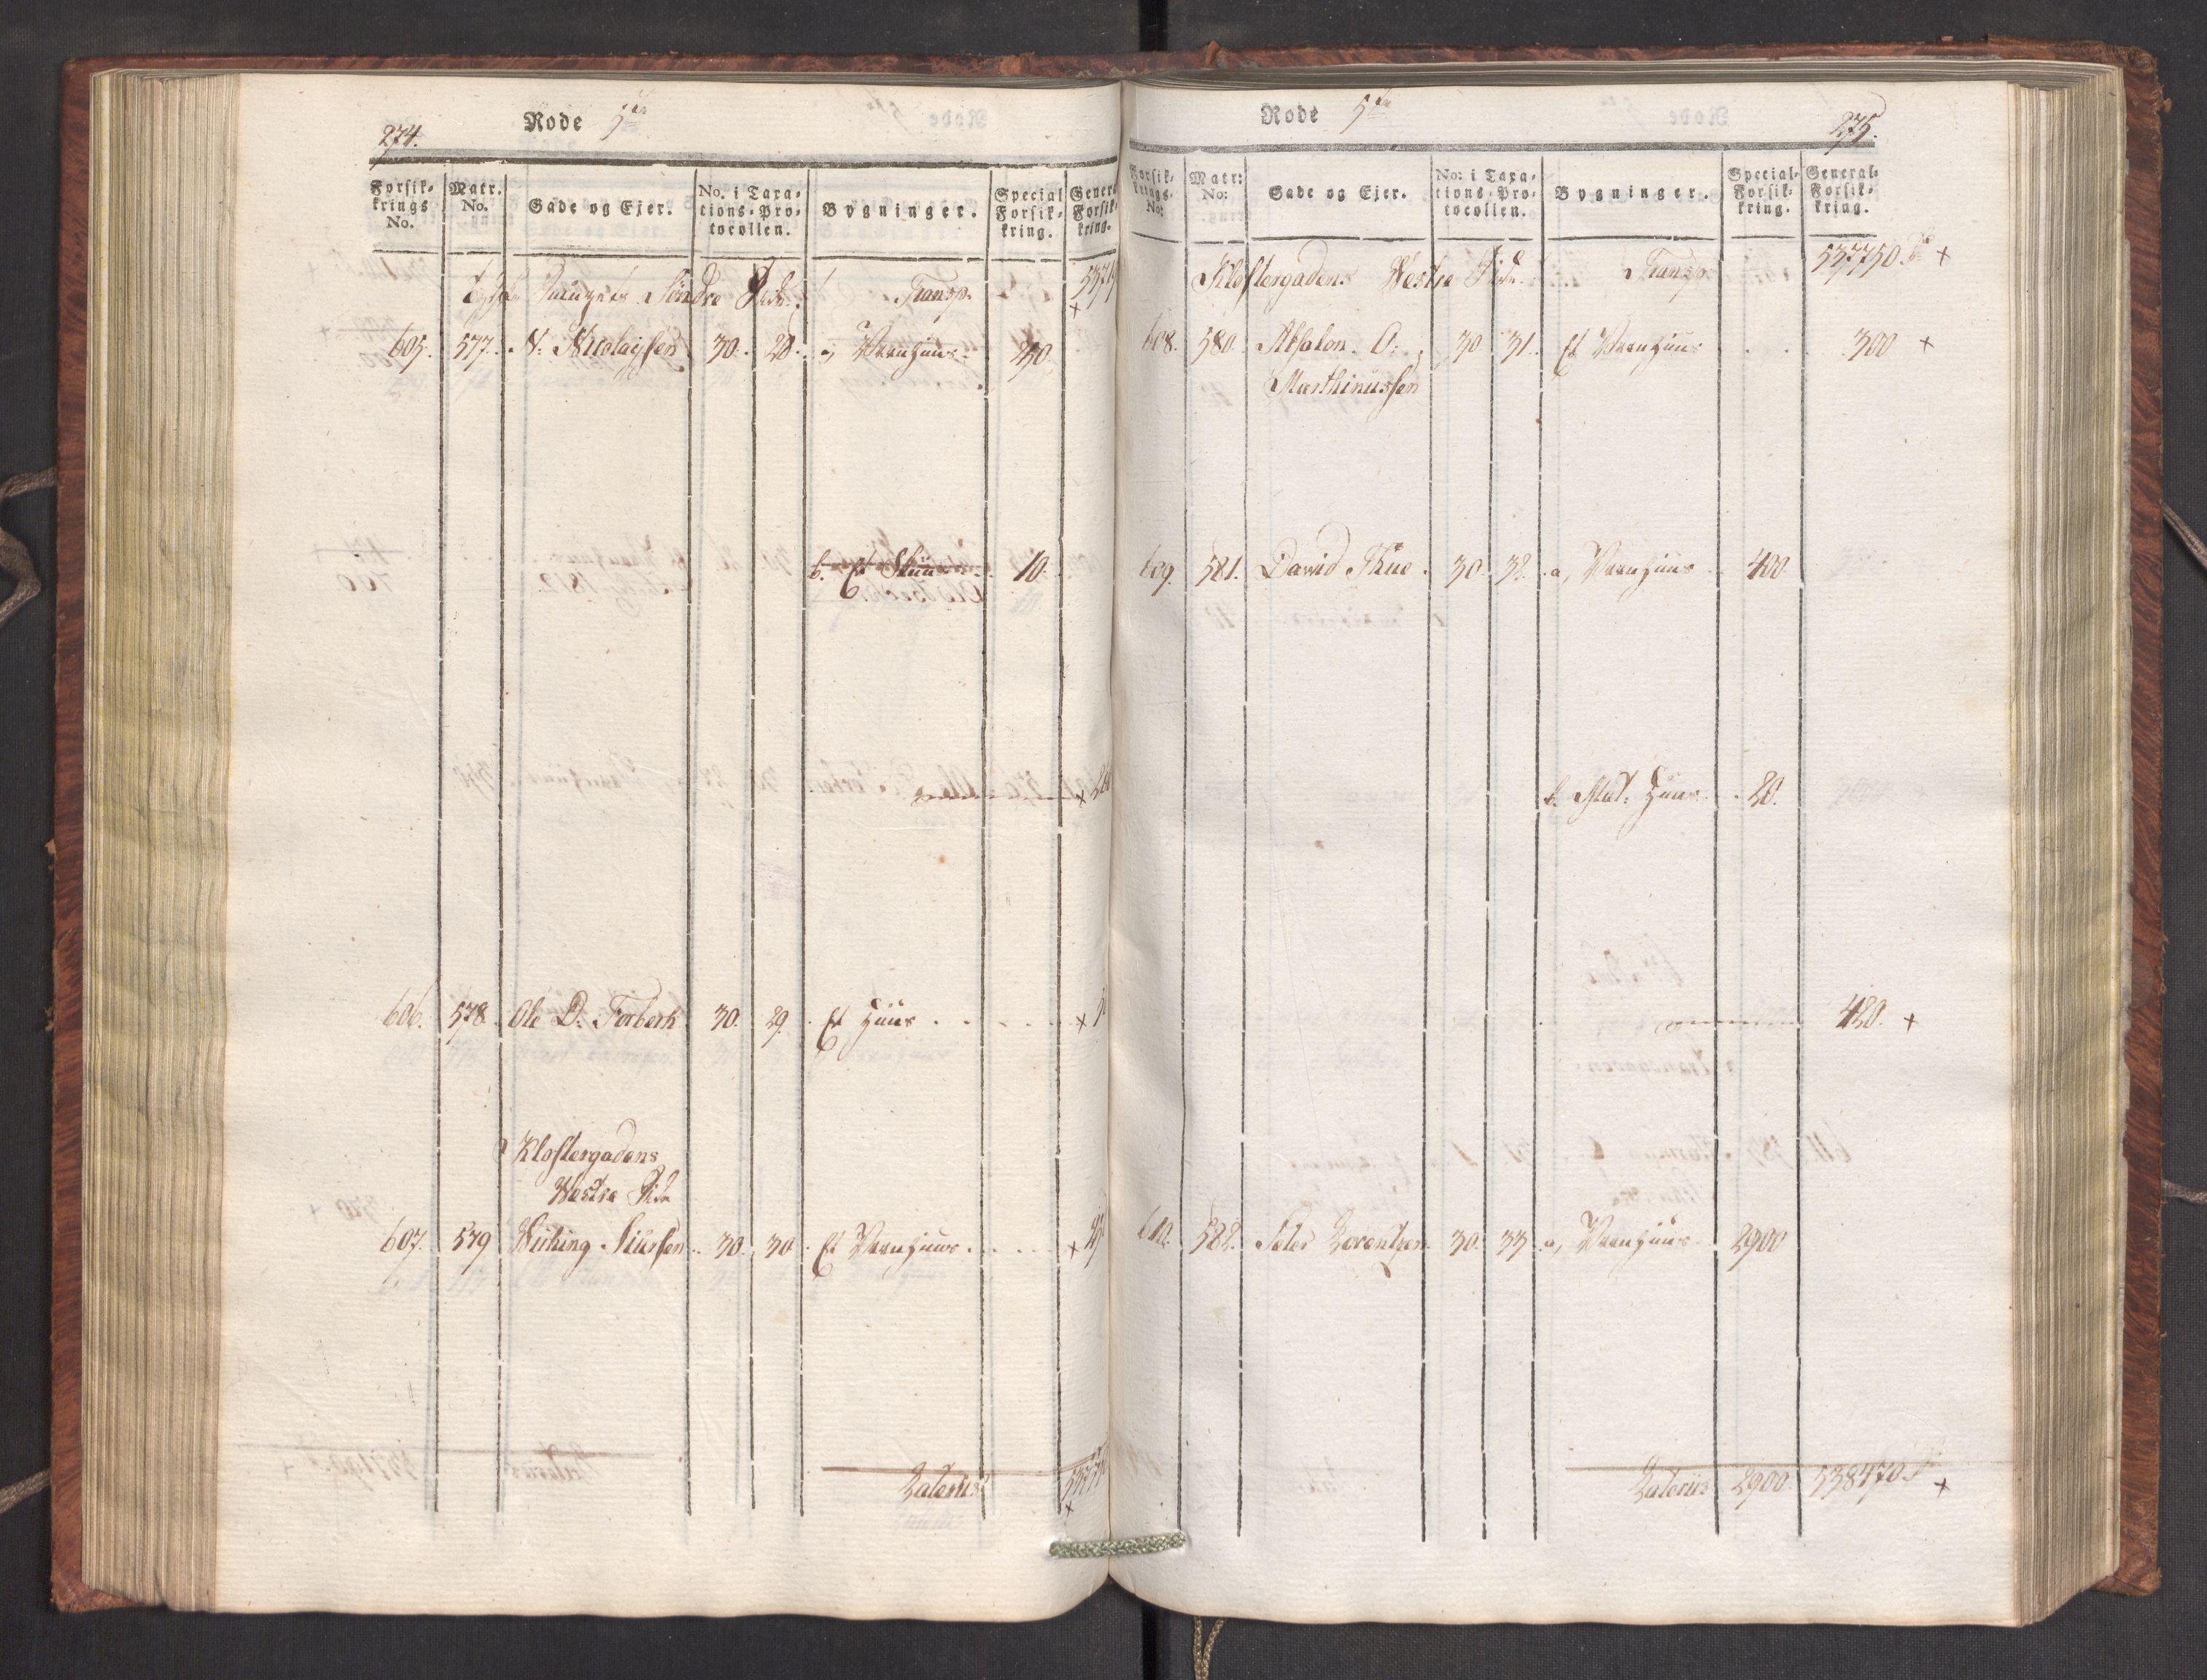 274.
Rode 5te
Forsik-
krings
No.
Matr.
No.
Gade og Ejer.
No. i Taxa-
tions-Pro-
tocollen.
Bygninger.
Special
Forsik-
kring.
Søndre Side. Transp.
605. 577. N. Nicolaysen 30. 28. a, Vaanhuus 250.
b. Et Skuur 10.
606. 578. Ole D. Forberh 30. 29. Et Huus
Klostergadens
Westre Side
607. 579 30. 30. Et Vaanhuus
Laterus
Rode 5te
275.
Forsik-
krings-
No:
Matr:
No:
Gade og Ejer.
No: i Taxa-
tions-Pro-
tocollen.
Bygninger.
Special-
Forsik-
kring.
General-
Forsik-
kring.
Klostergadens Westre Side. Transp. 537750 +
608. 580. Absalon O. 30 31. Et Vaanhuus 300 +
Marthinussen
609. 581. David Thue 30. 32. a, Vaanhuus 400
b. Huus 20.
420. +
610. 582. Lorentzen 30. 33 a, Vaanhuus 2900
Laterus 2900 538470 +